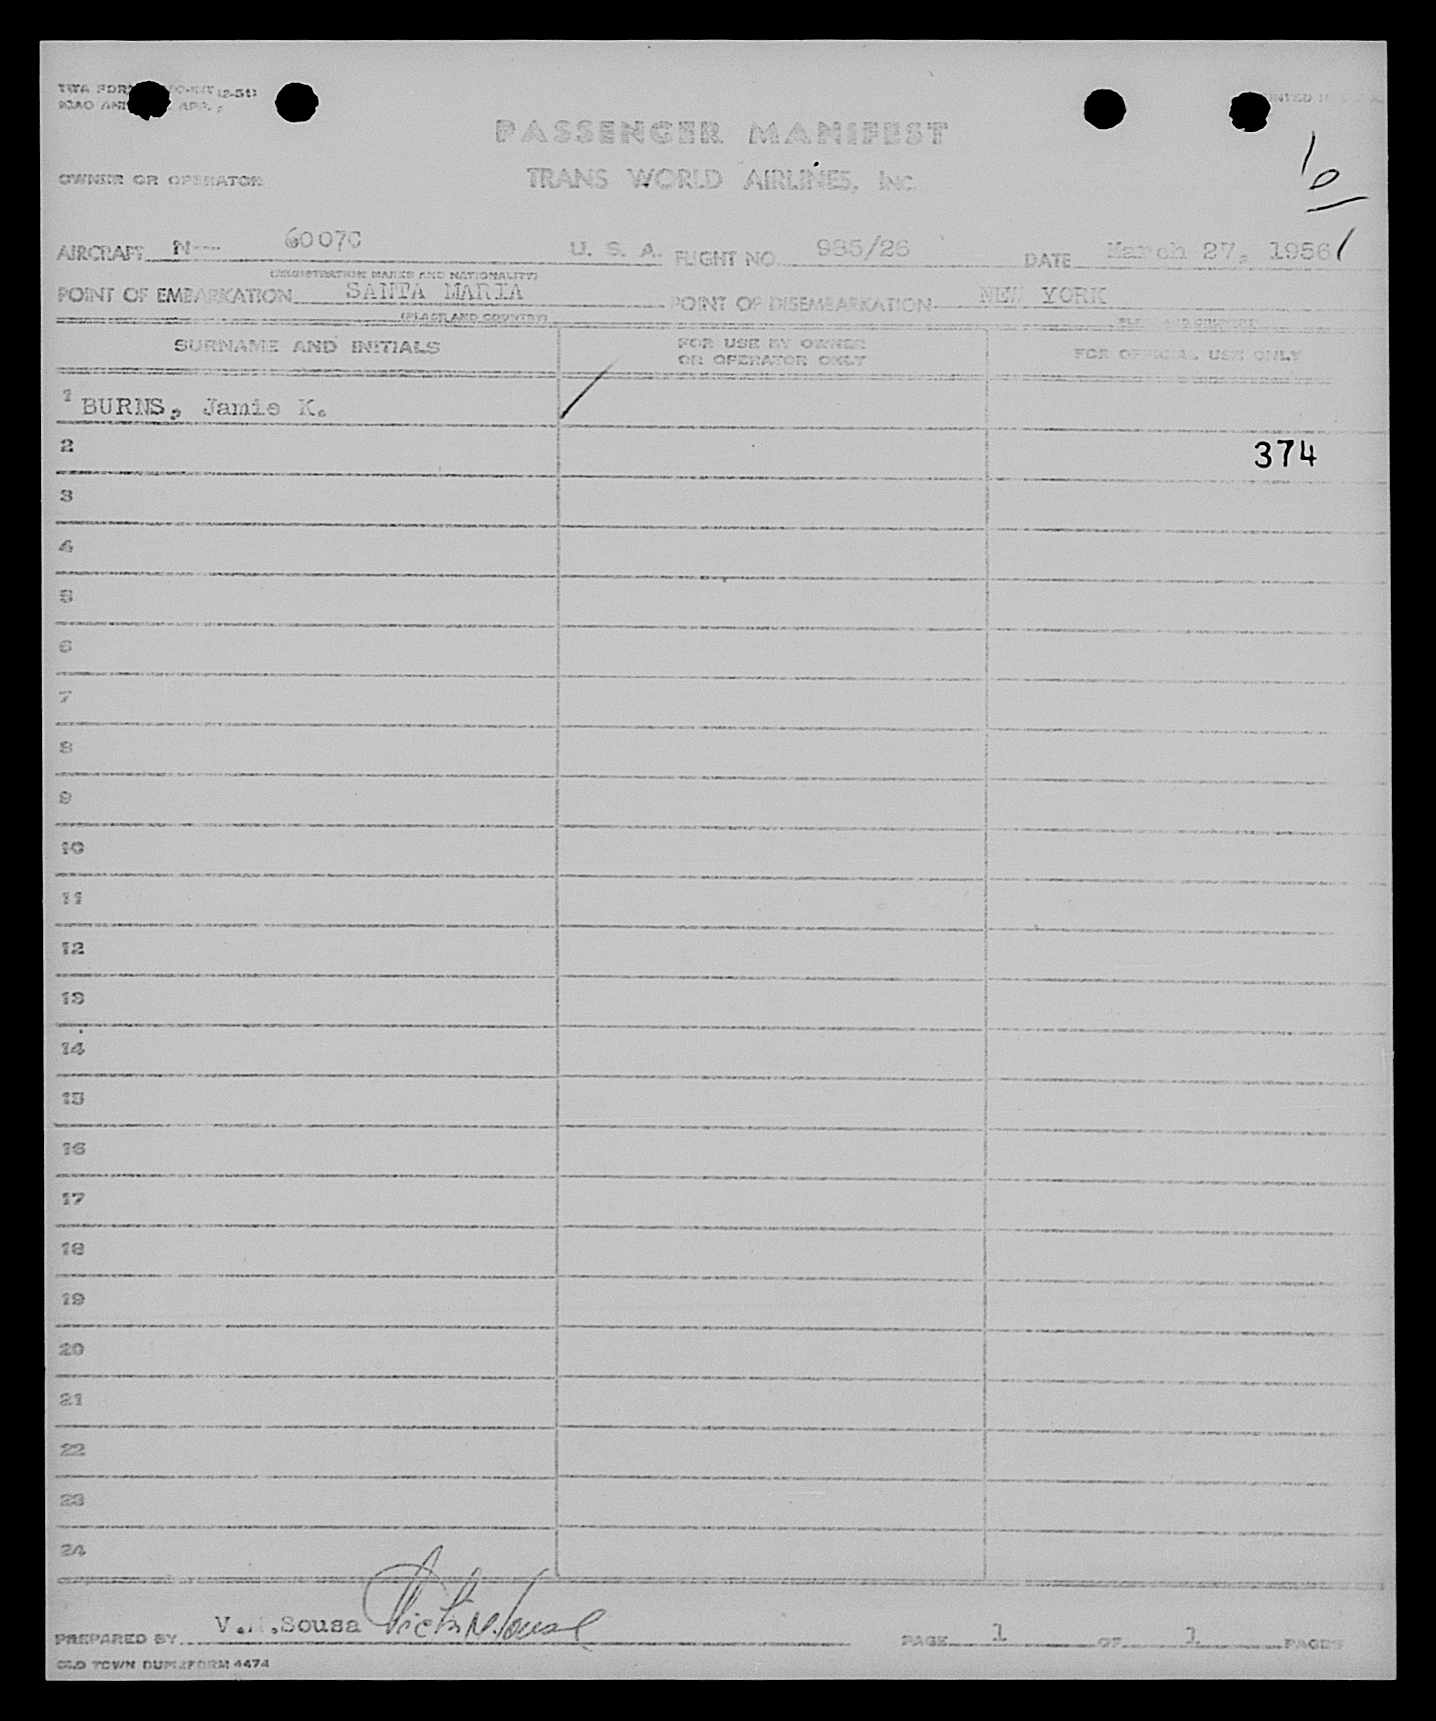 TWA FORM (2-51)
ICAO
PASSENGER MANIFEST
OWNER OR OPERATOR TRANS WORLD AIRLINES, INC.
AIRCRAFT N-- 6007C U. S. A. FLIGHT NO. 985/26 DATE March 27, 1956
(REGISTRATION MARKS AND NATIONALITY)
POINT OF EMBARKATION SANTA MARIA POINT OF DISEMBARKATION NEW YORK
(PLACE AND COUNTRY)
SURNAME AND INITIALS FOR USE BY OWNER OR OPERATOR ONLY FOR OFFICIAL USE ONLY
1 BURNS, Jamie K.
2 374
3
4
5
6
7
8
9
10
11
12
13
14
15
16
17
18
19
20
21
22
23
24
PREPARED BY V. .Sousa PAGE 1 OF 1 PAGES
OLD TOWN DUPLIFORM 4474